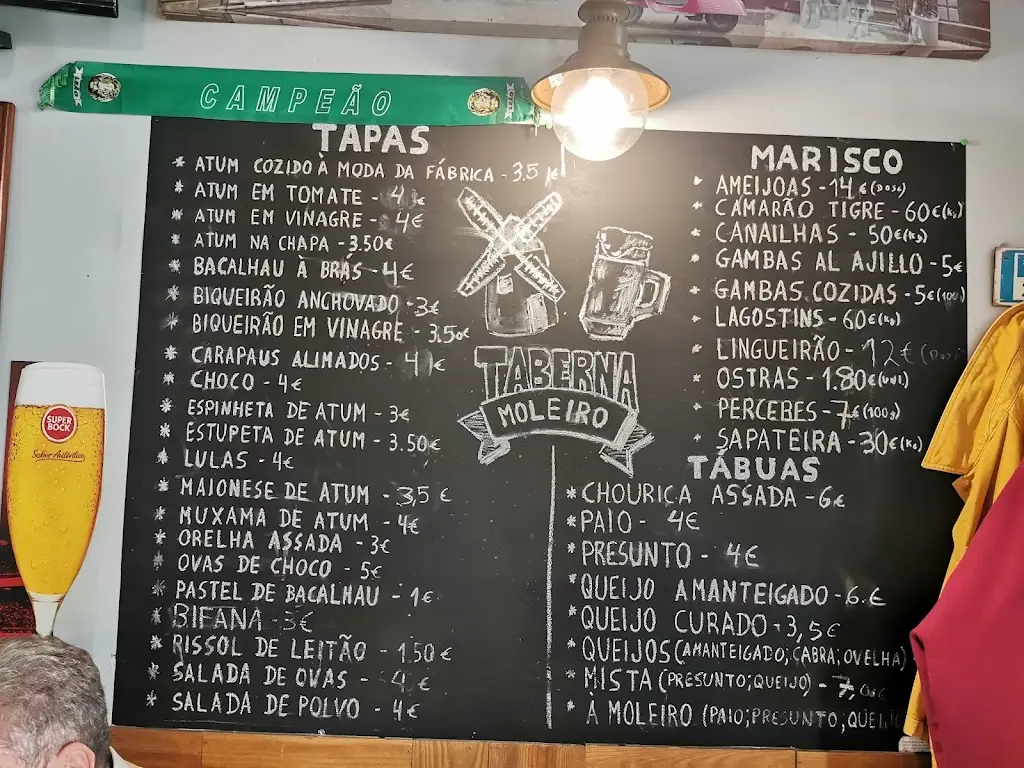 CAMPEÃO
TAPAS
* ATUM COZIDO À MODA DA FÁBRICA - 3.5
* ATUM EM TOMATE - 4 €
* ATUM EM VINAGRE - 4€
* ATUM NA CHAPA - 3.50€
* BACALHAU À BRÁS - 4€
* BIQUEIRÃO ANCHOVADO - 3€
* BIQUEIRÃO EM VINAGRE - 3.50€
* CARAPAUS ALIMADOS - 4 €
* CHOCO - 4€
* ESPINHETA DE ATUM - 3€
* ESTUPETA DE ATUM - 3.50€
* LULAS - 4€
* MAIONESE DE ATUM - 3,5 €
* MUXAMA DE ATUM - 4€
* ORELHA ASSADA - 3€
* OVAS DE CHOCO - 5€
* PASTEL DE BACALHAU - 1€
* BIFANA - 3€
* RISSOL DE LEITÃO - 1.50€
* SALADA DE OVAS - 4 €
* SALADA DE POLVO - 4€
TABERNA
MOLEIRO
MARISCO
* AMEIJOAS - 14€ (DOSE)
* CAMARÃO TIGRE - 60€(kg)
* CANAILHAS - 50€(kg)
* GAMBAS AL AJILLO - 5€
* GAMBAS COZIDAS - 5€(100g)
* LAGOSTINS - 60€(kg)
* LINGUEIRÃO - 12€
* OSTRAS - 1.80€(UNI)
* PERCEBES - 7€(100g)
* SAPATEIRA - 30€(kg)
TÁBUAS
* CHOURIÇA ASSADA - 6€
* PAIO - 4€
* PRESUNTO - 4€
* QUEIJO AMANTEIGADO - 6.€
* QUEIJO CURADO - 3,5€
* QUEIJOS (AMANTEIGADO; CABRA; OVELHA)
* MISTA (PRESUNTO; QUEIJO) - 7,
* À MOLEIRO (PAIO; PRESUNTO,
SUPER
BOCK
Sabor Autêntico